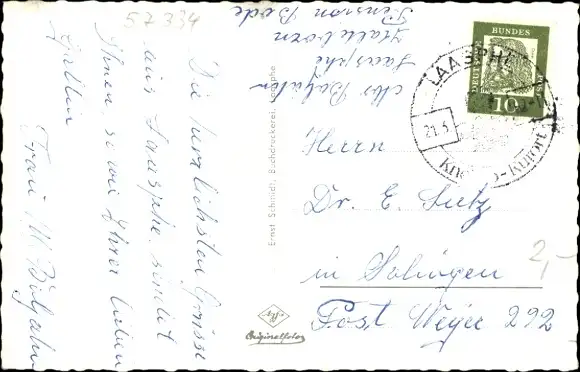 57334
Die herzlichsten Grüsse
aus Laasphe sendet
Ihnen, sowie Ihrer lieben
Gattin
Frau M. Bilfahn
Laasphe
Pension Bode
Ernst Schmidt, Buchdruckerei, Laasphe
Originalfoto
DEUTSCHE BUNDESPOST
10
LAASPHE
21.5
Kneipp-Kurort
Herrn
Dr. E. Lutz
in Solingen
Post Weyer 292
2,-